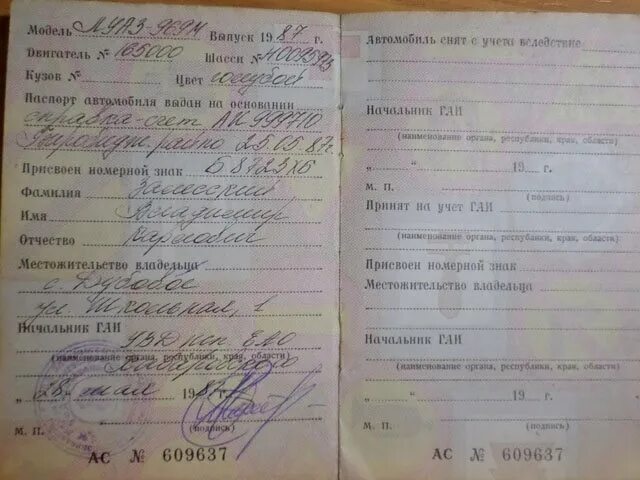 Модель ЛУАЗ-969М Выпуск 1987 г.
Двигатель № 165000 Шасси № 40095923
Кузов № Цвет голубой
Паспорт автомобиля выдан на основании
справка-счет АК 999710
25.05.87г.
Присвоен номерной знак Б 8723 ХБ
Фамилия Залесский
Имя Владимир
Отчество Карлович
Местожительство владельца
с. Дубовое
ул Школьная, 1
Начальник ГАИ УВД ЕАО
(наименование органа, республики, края, области)
„28" мая 1987 г.
М. П. (подпись)
АС № 609637
Автомобиль снят с учета вследствие
Начальник ГАИ
(наименование органа, республики, края, области)
„ " 19 г.
М. П. (подпись)
Принят на учет ГАИ
(наименование органа, республики, края, области)
Присвоен номерной знак
Местожительство владельца
Начальник ГАИ
(наименование органа, республики, края, области)
„ " 19 г.
М. П. (подпись)
АС № 609637